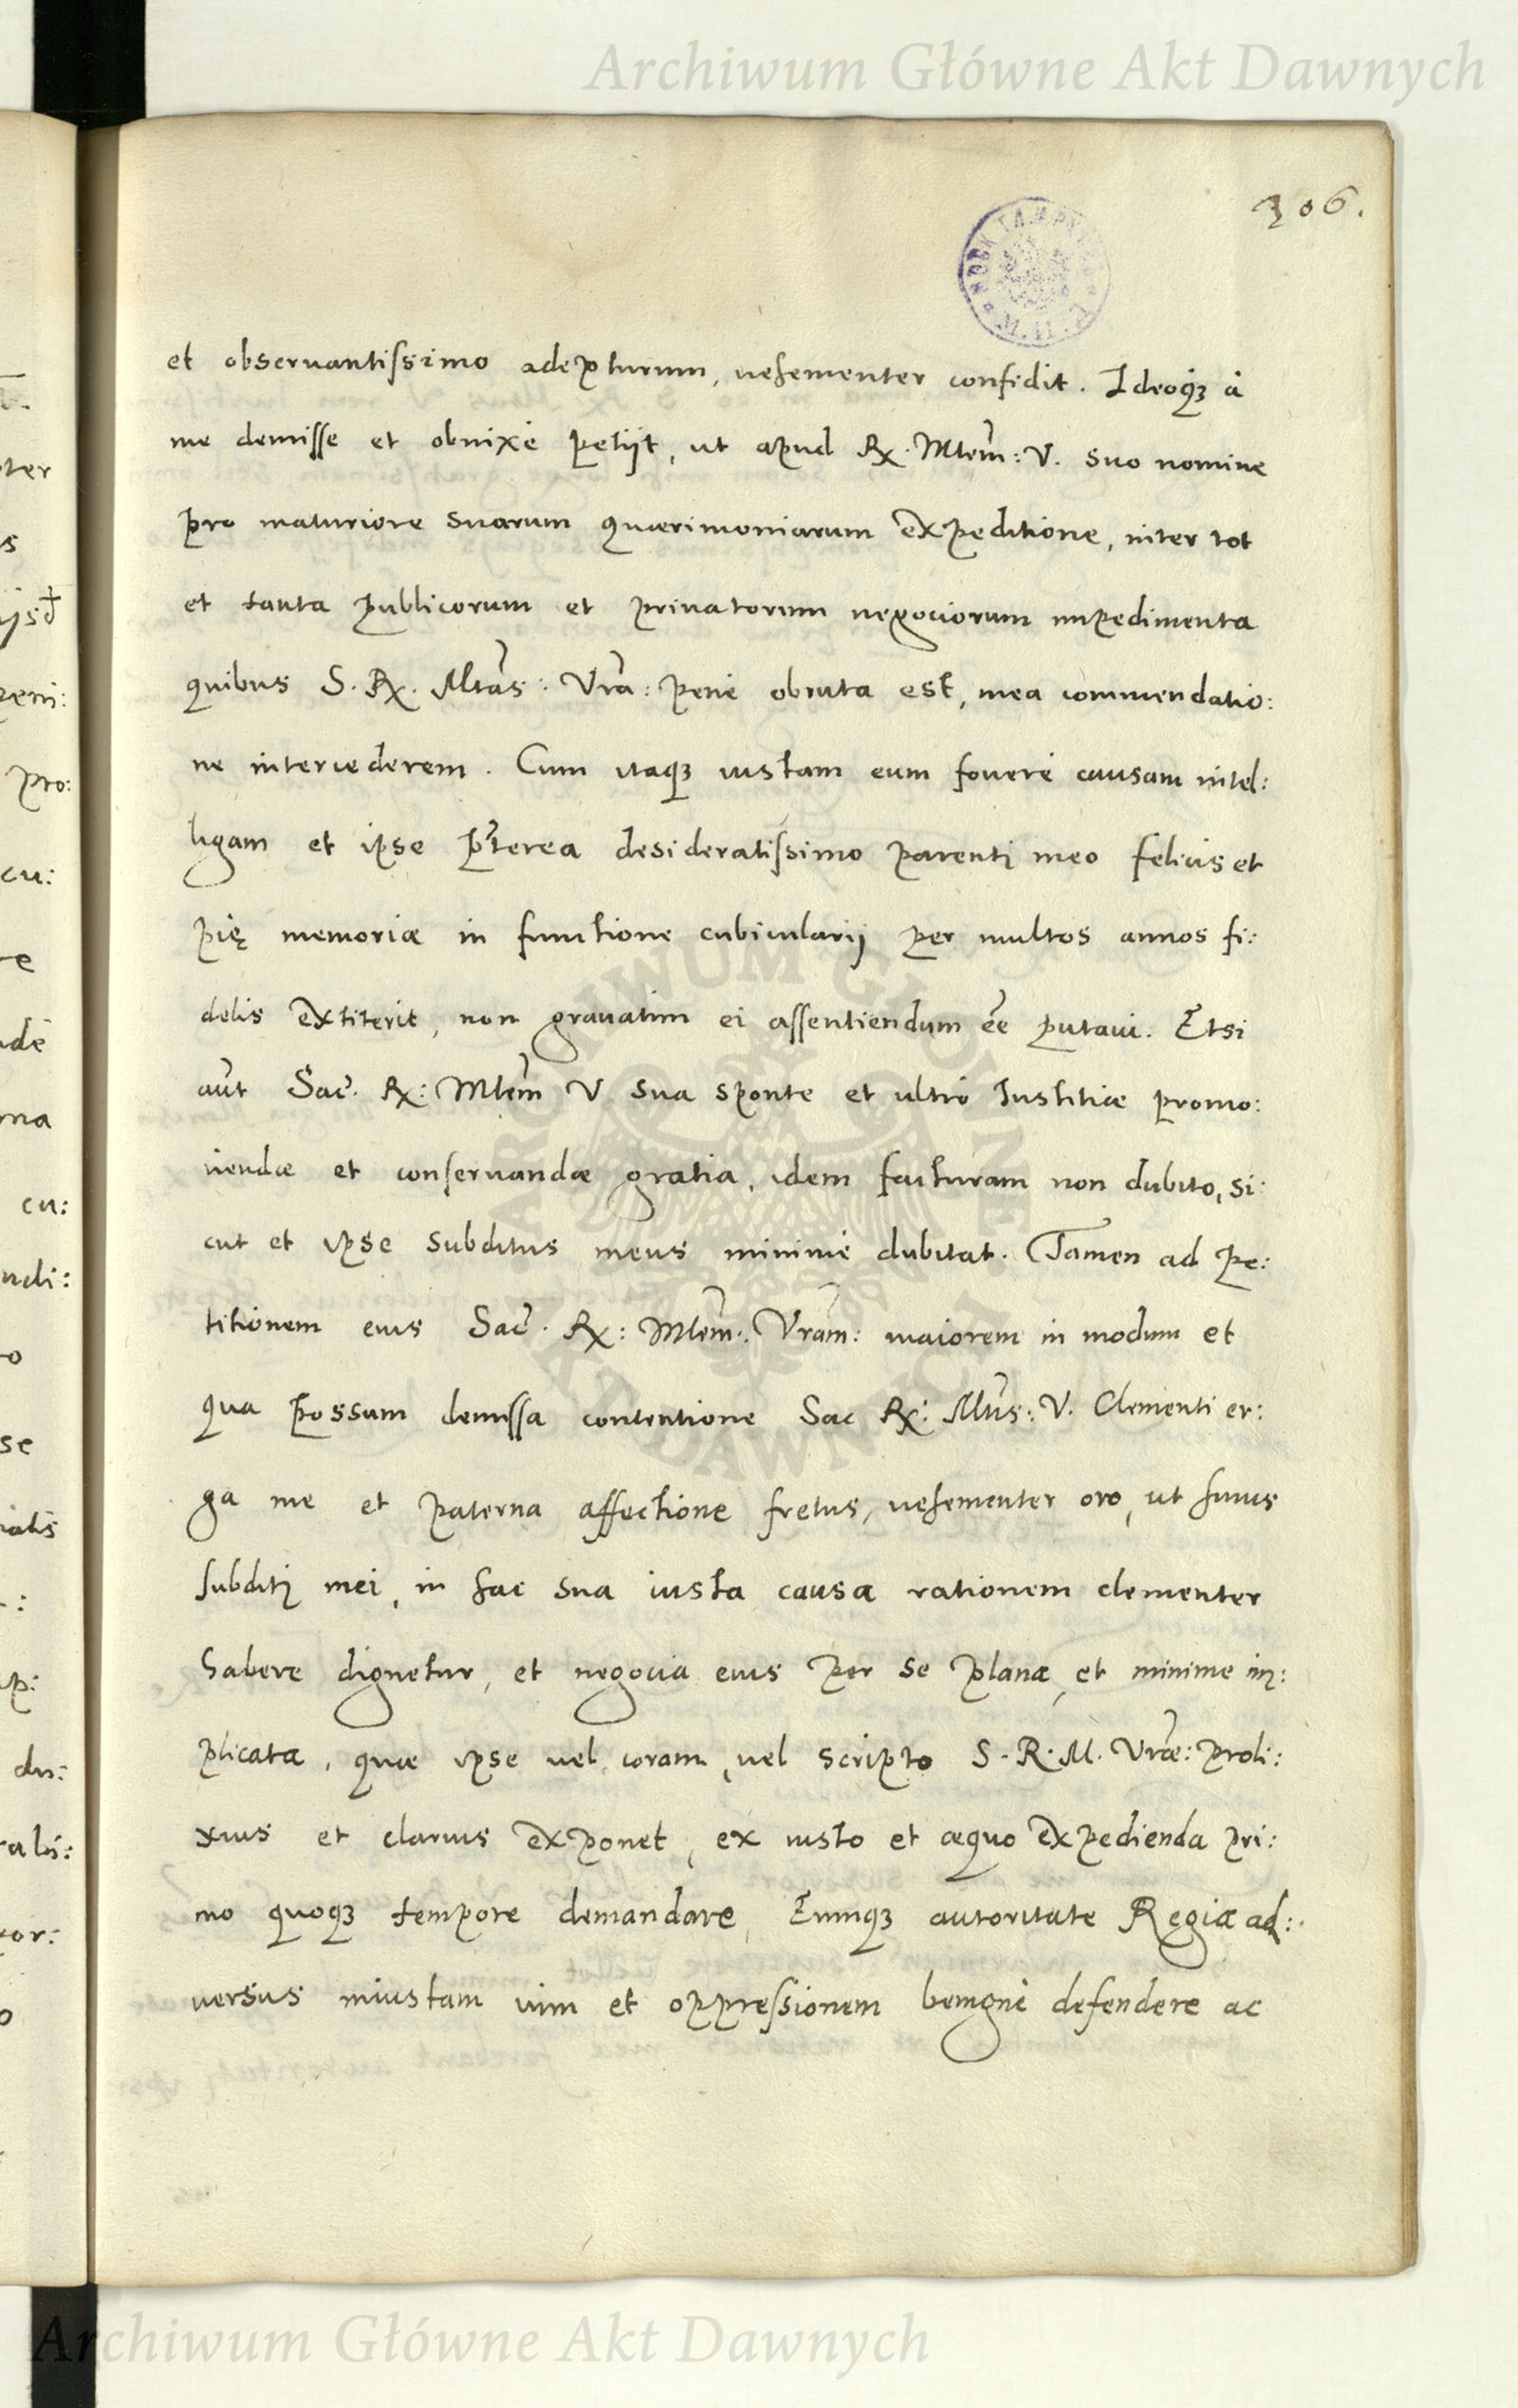 Archiwum Główne Akt Dawnych
306.
et obseruantissimo adepturum, uehementer confidit. Ideoq́3 à
me demisse et obnixè petijt, ut apud Rx. Mtem̃: V. suo nomine
pro maturiore suarum quærimoniarum expeditione, inter tot
et tanta publicorum et priuatorum negociorum impedimenta
quibus S. Rx. Mtas̃: Vrã: penè obruta est, mea commendatio:
ne intercederem. Cum itaq3 iustam eum fouere causam intel:
ligam et ipse p̃terea desideratissimo parenti meo felicis et
pię memoriæ in functione cubicularij per multos annos fi:
delis extiterit, non grauatim ei assentiendum eẽ putaui. Etsi
aut̃ Sac̃. Rx: Mtem̃ V sua sponte et ultrò Iustitiæ promo:
uendæ et conseruandæ gratia, idem facturam non dubito, si:
cut et ipse subditus meus minimè dubitat. Tamen ad pe:
titionem eius Sac̃. Rx: Mtem̃: Vram̃: maiorem in modum et
qua possum demissa contentione Sac Rx: Mtis̃: V. Clementi er:
ga me et paterna affectione fretus, uehementer oro, ut huius
subditi mei, in hac sua iusta causa rationem clementer
habere dignetur, et negocia eius per se plana, et minime im:
plicata, quæ ipse uel coram, uel scripto S. R. M. Vræ̃: proli:
xius et clarius exponet, ex iusto et æquo expedienda pri:
mo quoq3 tempore demandare, Eumq3 autoritate Regia ad:
uersus iniustam uim et oppressionem benignè defendere ac
Archiwum Główne Akt Dawnych